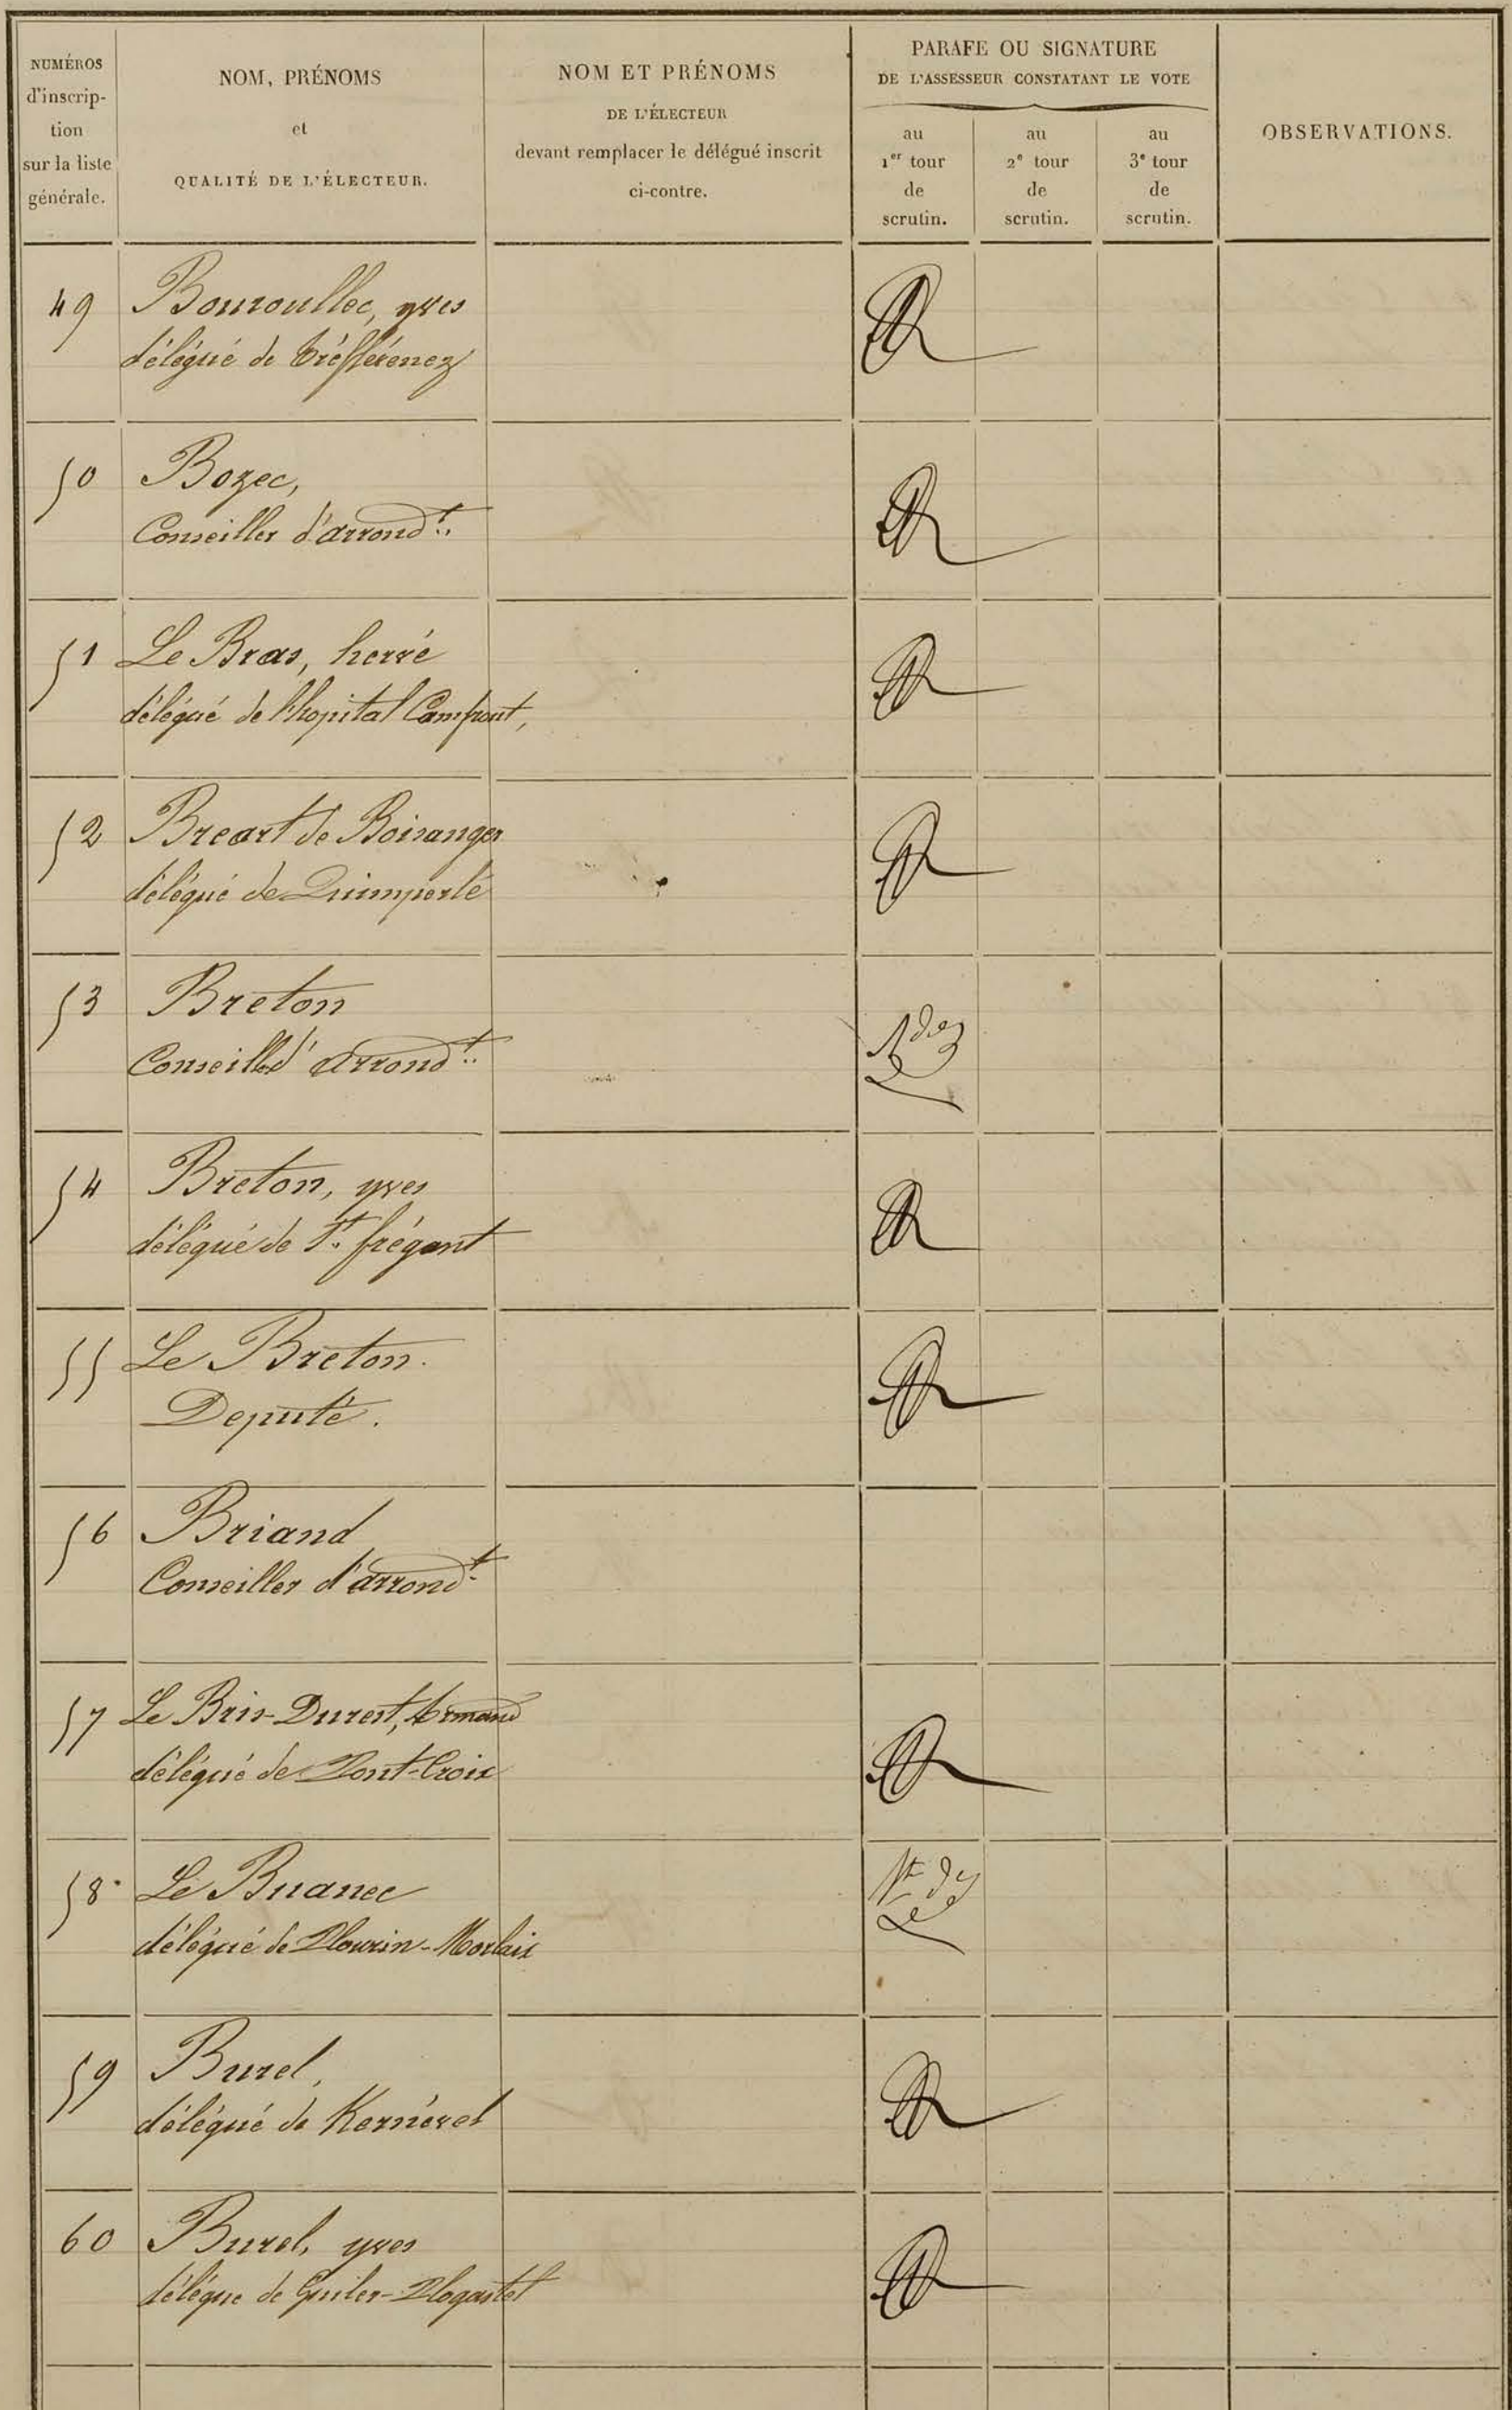 NUMÉROS
d'inscrip-
tion
sur la liste
générale.
NOM, PRÉNOMS
et
QUALITÉ DE L'ÉLECTEUR.
NOM ET PRÉNOMS
DE L'ÉLECTEUR
devant remplacer le délégué inscrit
ci-contre.
PARAFE OU SIGNATURE
DE L'ASSESSEUR CONSTATANT LE VOTE
au
1er tour
de
scrutin.
au
2e tour
de
scrutin.
au
3e tour
de
scrutin.
OBSERVATIONS.
49 Bouroullec, yves
délégué de Tréflévenez
50 Bozec,
Conseiller d'arrondt.
51 Le Bras, hervé
délégué de l'hopital Camfrout,
52 Breart de Boisanger
délégué de Quimperlé
53 Breton
Conseiller d'arrondt.
54 Breton, yves
délégué de St. frégant
55 Le Breton.
Deputé.
56 Briand
Conseiller d'arrondt.
57 Le Bris-Durest, Armand
délégué de Pont-Croix
58 Le Buanec
délégué de Plourin-Morlaix
59 Burel,
délégué de Kernével
60 Burel, yves
délégue de Guiler-Plogastel